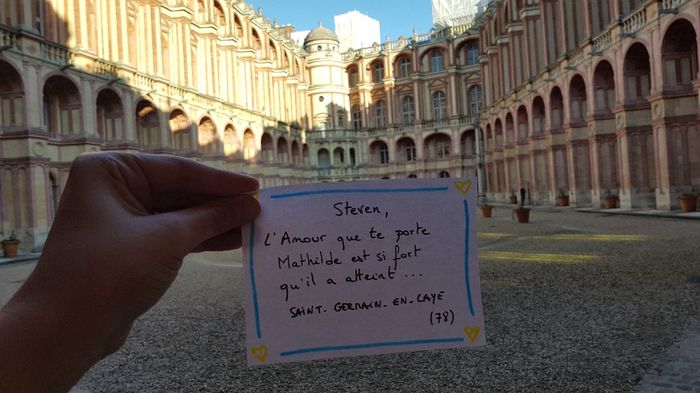 Steven,
L'Amour que te porte
Mathilde est si fort
qu'il a atteint ...
SAINT. GERMAIN. EN. LAYE
(78)